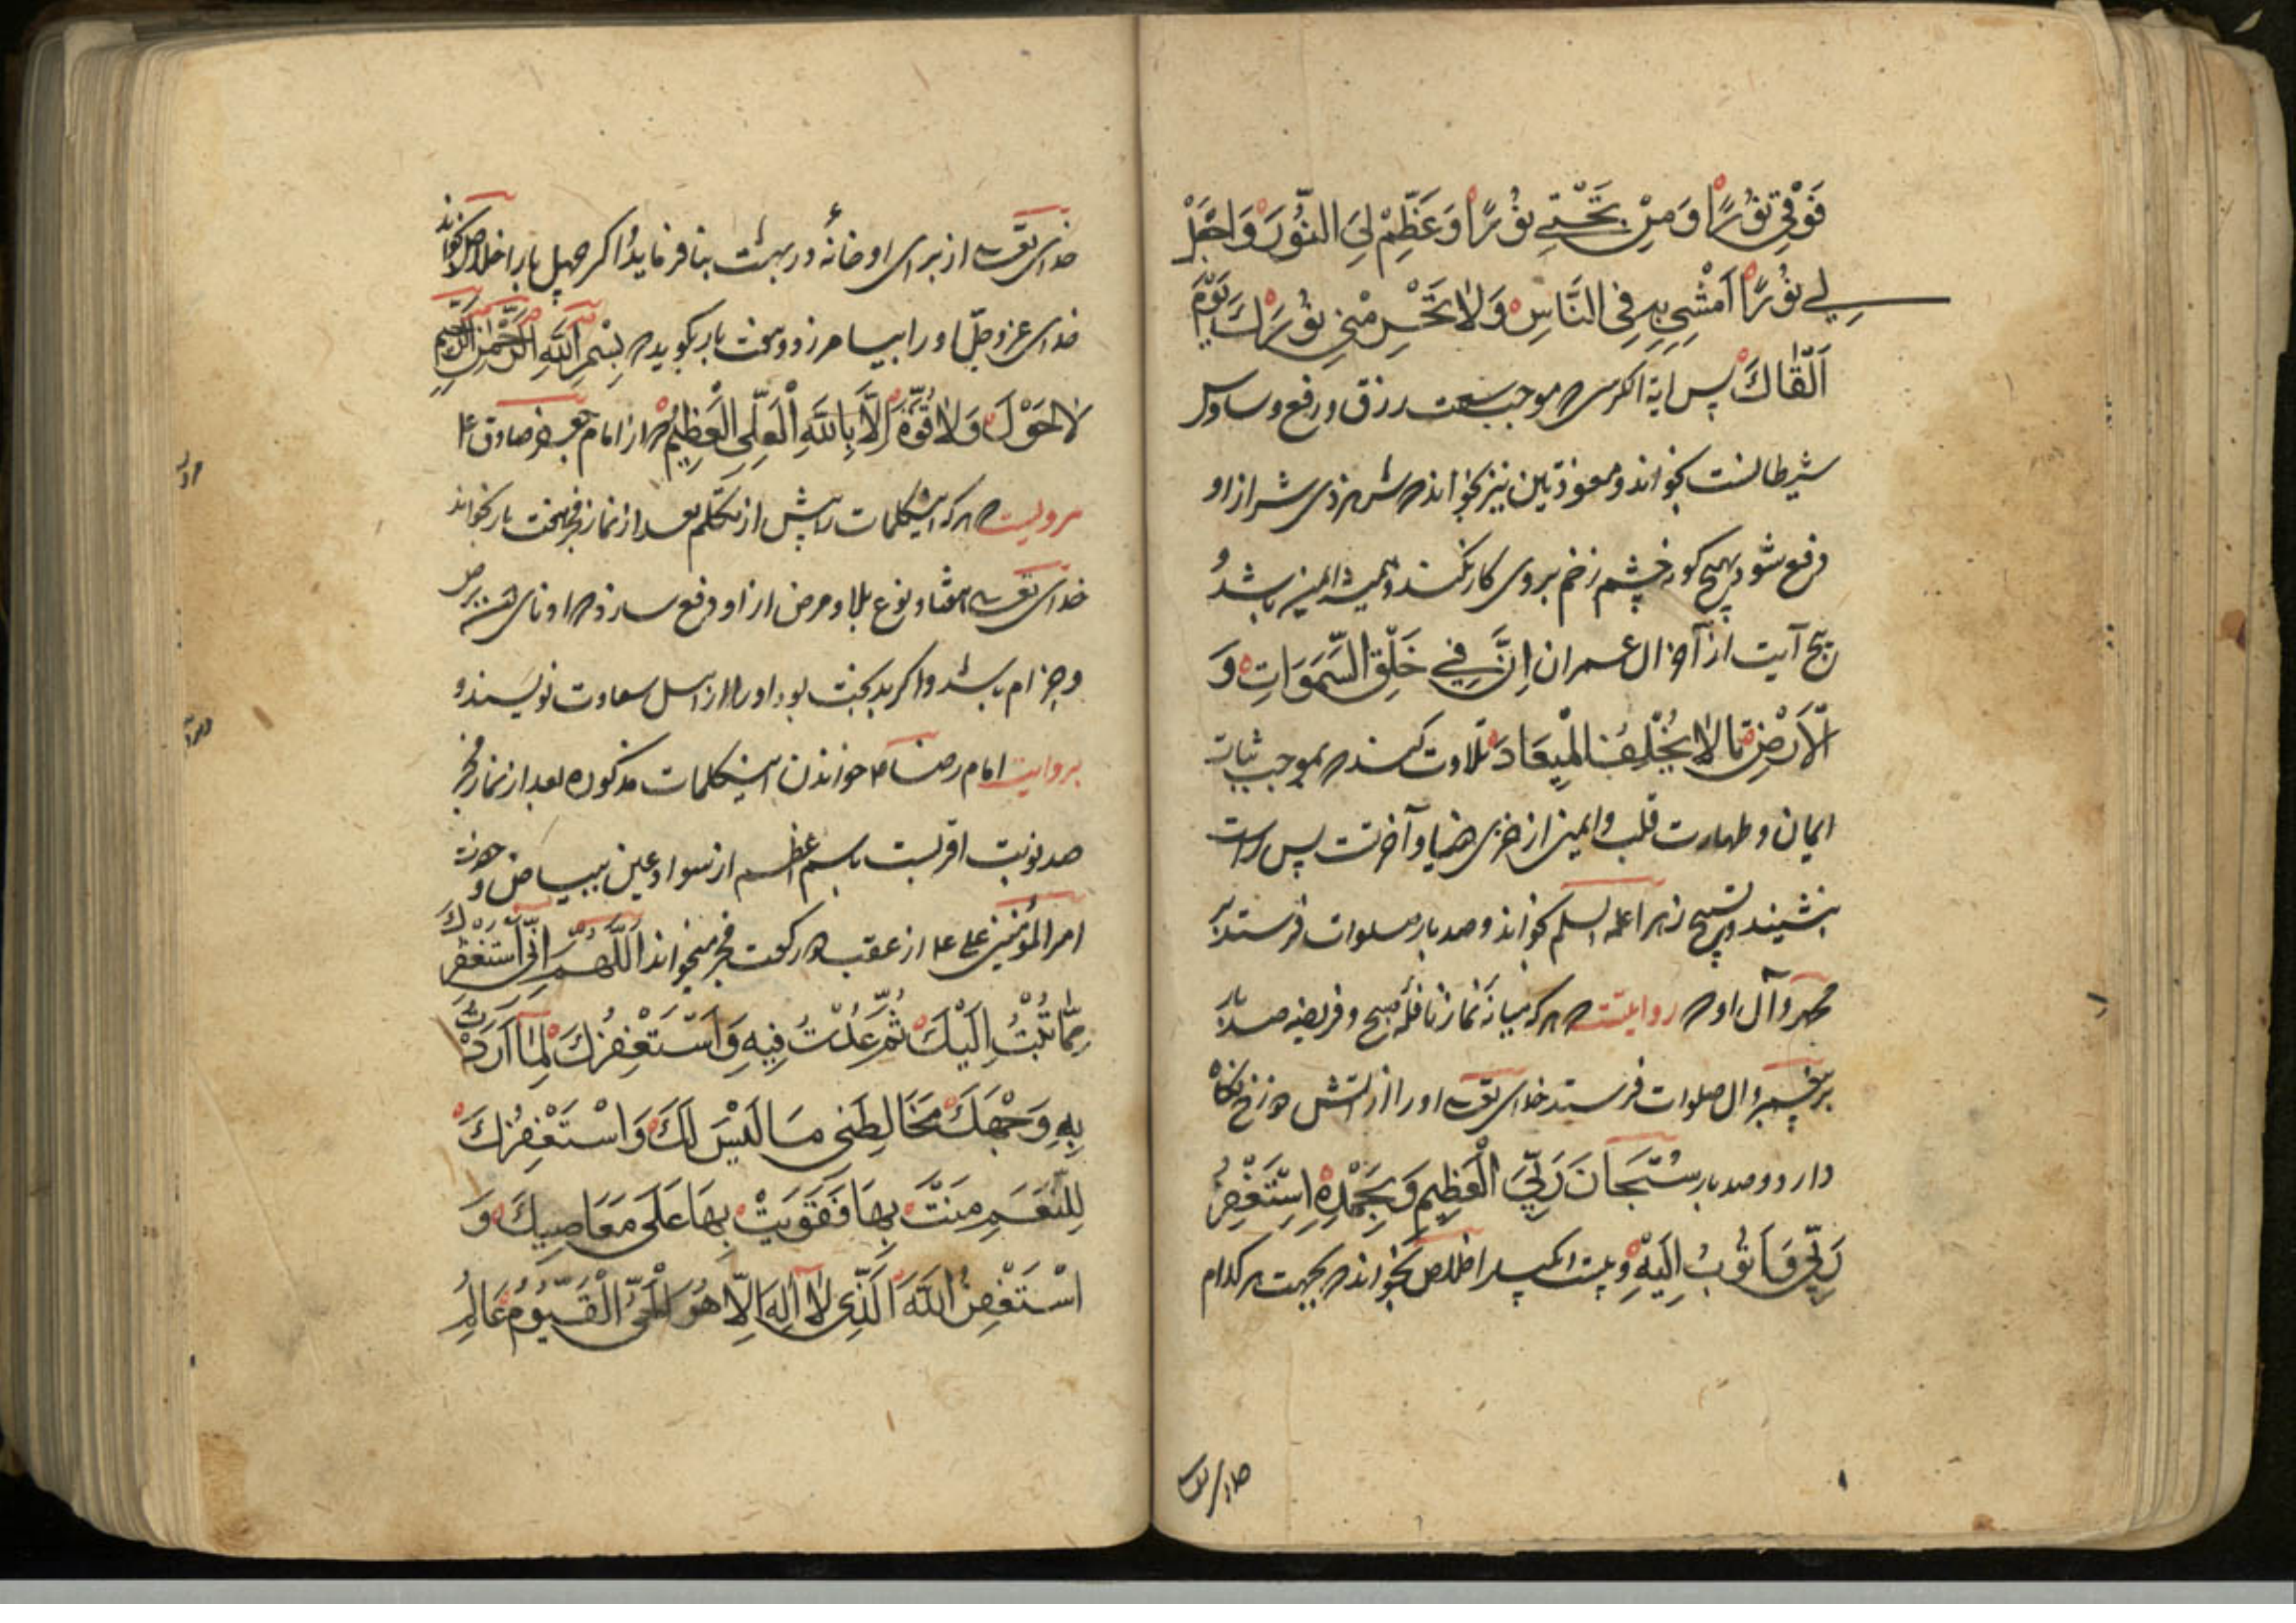 فَوْقِي نُوْرًا وَمِنْ تَحْتِي نُوْرًا وَعَظِّمْ لِيَ النُّوْرَ وَاجْعَلْ
لِي نُوْرًا اَمْشِي بِهِ فِي النَّاسِ وَلَا تَحْرِمْنِي نُوْرَكَ يَوْمَ
اَلْقَاكَ پس آیة الکرسی که موجب سعت رزق و رفع وساوس
شیطانست بخواند و معوذتین نیز بخواند که شر هر ذی شر از او
دفع شود و هیچ کونه چشم زخم بروی کار نکند و همیشه ایمن باشد و
پنج آیت از آخر ال عمران اِنَّ فِي خَلْقِ السَّمٰوَاتِ وَ
الْاَرْضِ تا لَا يُخْلِفُ الْمِيعَادَ تلاوت کند که موجب ثبات
ایمان و طهارت قلب و ایمنی از خزی دنیا و آخرتست پس راست
بنشیند و تسبیح زهرا علیها السلم بخواند و صد بار صلوات فرستد بر
محمد و آل او که روایتست که هر که میانه نماز نافله صبح و فریضه صد بار
بر پیغمبر و ال صلوات فرستد خدای تعالی او را از اتش دوزخ نکاه
دارد و صد بار سُبْحَانَ رَبِّيَ الْعَظِيمِ وَبِحَمْدِهِ اَسْتَغْفِرُ
رَبِّي وَاَتُوبُ اِلَيْهِ و بیست و یکبار اخلاص بخواند که بجهت هر کدام
خدای تعالی
خدای تعالی از برای او خانهٔ در بهشت بنا فرماید و اکر چهل بار اخلاص بخواند
خدای عز و جل او را بیامرزد و هفت بار بکوید که بِسْمِ اللّٰهِ الرَّحْمٰنِ الرَّحِيمِ
لَا حَوْلَ وَلَا قُوَّةَ اِلَّا بِاللّٰهِ الْعَلِيِّ الْعَظِيمِ که از امام جعفر صادق ع
مرویست که هر که اینکلمات را پیش از تکلم بعد از نماز فجر هفت بار بخواند
خدای تعالی هفتاد نوع بلا و مرض از او دفع سازد که ادنای همه برص
و جزام باشد و اکر بدبخت بود او را از اهل سعادت نویسند و
بروایت امام رضا ع خواندن اینکلمات مذکوره بعد از نماز فجر
صد نوبت اقربست باسم اعظم از سواد عین ببیاض و حضرت
امیر المؤمنین علی ع از عقب دو رکعت فجر میخواند اَللّٰهُمَّ اِنِّي اَسْتَغْفِرُكَ
مِمَّا تُبْتُ اِلَيْكَ ثُمَّ عُدْتُ فِيهِ وَاَسْتَغْفِرُكَ لِمَا اَرَدْتُ
بِهِ وَجْهَكَ فَخَالَطَنِي مَا لَيْسَ لَكَ وَاَسْتَغْفِرُكَ
لِلنِّعَمِ مَنَنْتَ بِهَا فَقَوِيتُ بِهَا عَلَى مَعَاصِيكَ وَ
اَسْتَغْفِرُ اللّٰهَ الَّذِي لَا اِلٰهَ اِلَّا هُوَ الْحَيُّ الْقَيُّوْمُ عَالِمُ